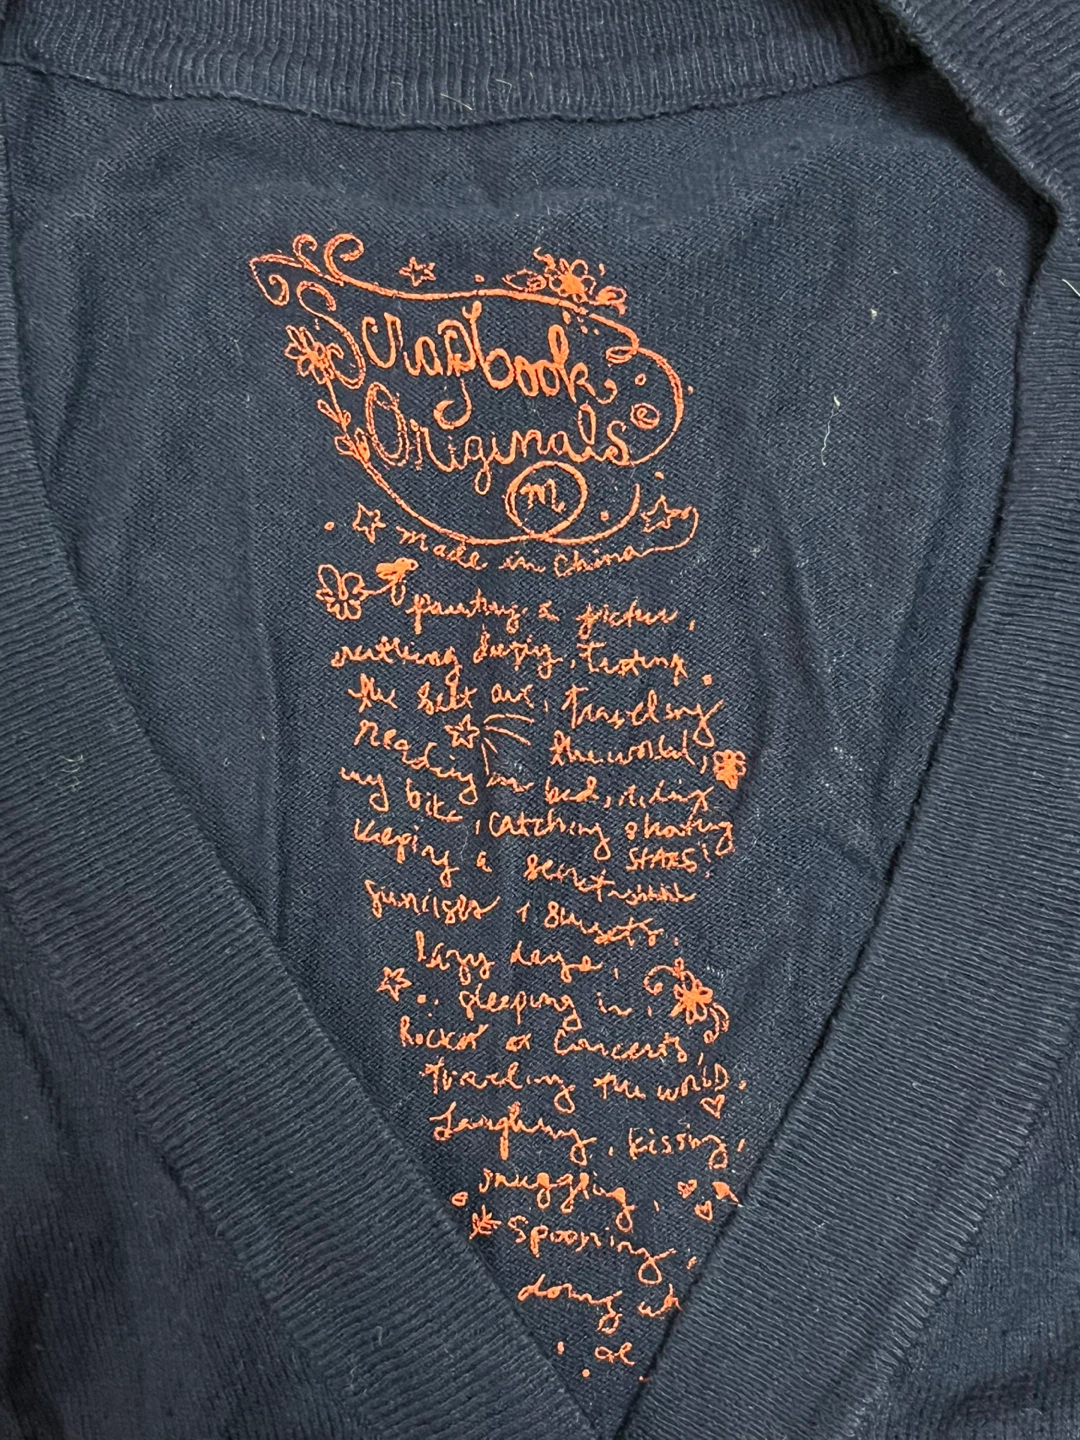 Scrapbook
Originals
m
made in China
painting a picture,
sleeping, tasting
the best ous, traveling
the world,
reading in bed, riding
my bike, catching shooting
stars!
keeping a secret shhhh
sunrises & sunsets,
lazy days,
sleeping in!
Rockin at Concerts,
traveling the world.
Laughing, kissing,
snuggling,
spooning,
doing